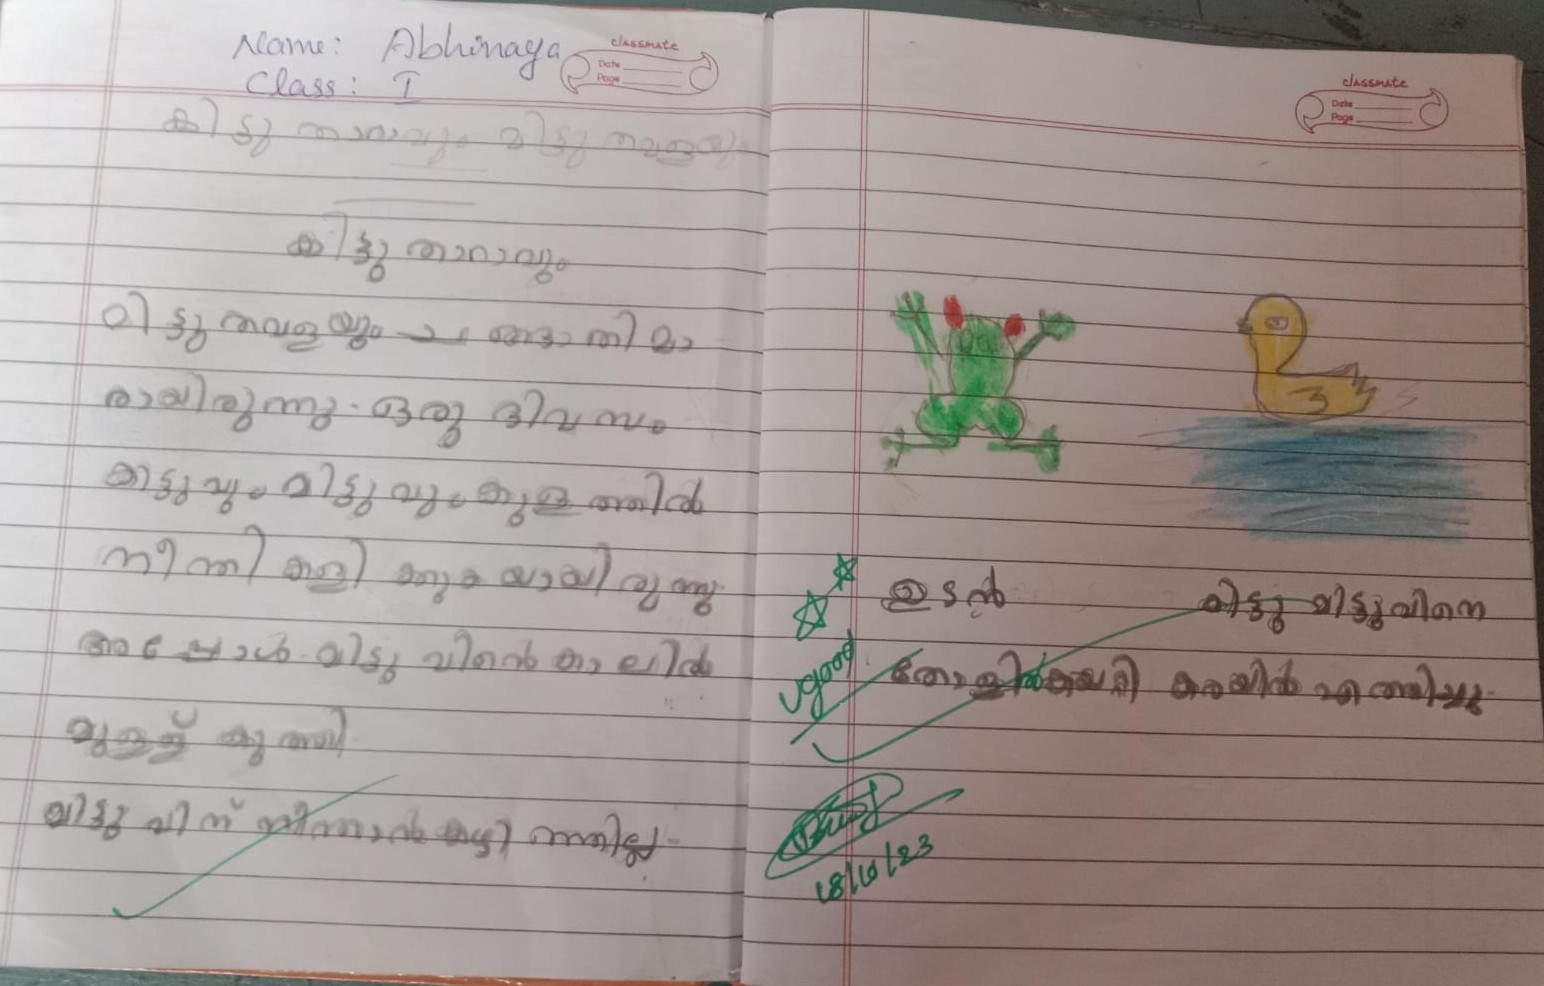 Name: Abhinaya
Class: I
classmate
Date
Page
കിട്ടു താറാവും മിട്ടു തവളയും
കിട്ടു താറാവും
മിട്ടു തവളയും ചങ്ങാതിമാ
രായിരുന്നു. ഒരു ദിവസം
കിട്ടുവും മിട്ടുവും കുളത്തിൽ
നീന്തി കളിക്കുകയായിരുന്നു
അപ്പോൾ മിട്ടുവിൻെ കാലിൽ
മുളള് കുത്തി.
മിട്ടുവിന് നീന്താൻ കഴിഞ്ഞില്ല.
classmate
Date
Page
ഉടൻ കിട്ടു മിട്ടുവിനെ
തോളിൽകയറ്റി കരയിൽ എത്തിച്ചു.
Vgood